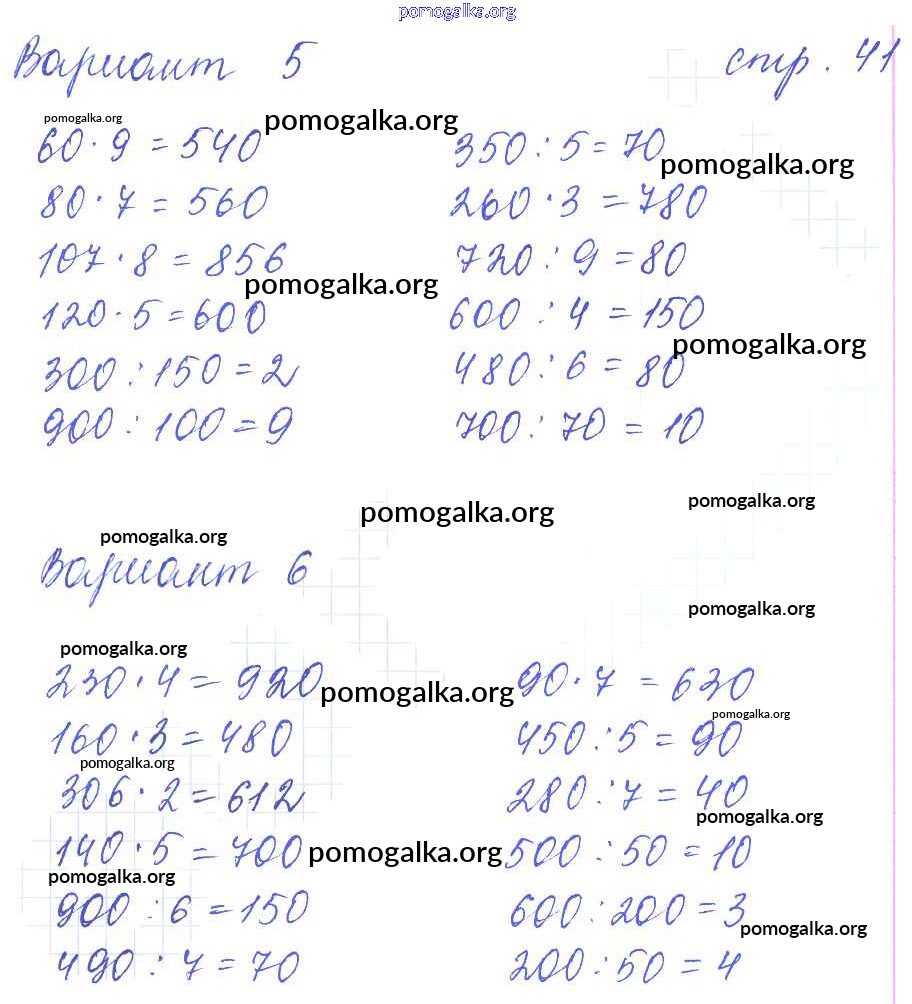 pomogalka.org
Вариант 5 стр. 41
pomogalka.org
pomogalka.org
60 · 9 = 540 350 : 5 = 70
pomogalka.org
80 · 7 = 560 260 · 3 = 780
107 · 8 = 856 720 : 9 = 80
pomogalka.org
120 · 5 = 600 600 : 4 = 150
pomogalka.org
300 : 150 = 2 480 : 6 = 80
900 : 100 = 9 700 : 70 = 10
pomogalka.org
pomogalka.org
pomogalka.org
Вариант 6
pomogalka.org
pomogalka.org
230 · 4 = 920 90 · 7 = 630
pomogalka.org
pomogalka.org
160 · 3 = 480 450 : 5 = 90
pomogalka.org
306 · 2 = 612 280 : 7 = 40
pomogalka.org
140 · 5 = 700 500 : 50 = 10
pomogalka.org
pomogalka.org
900 : 6 = 150 600 : 200 = 3
pomogalka.org
490 : 7 = 70 200 : 50 = 4